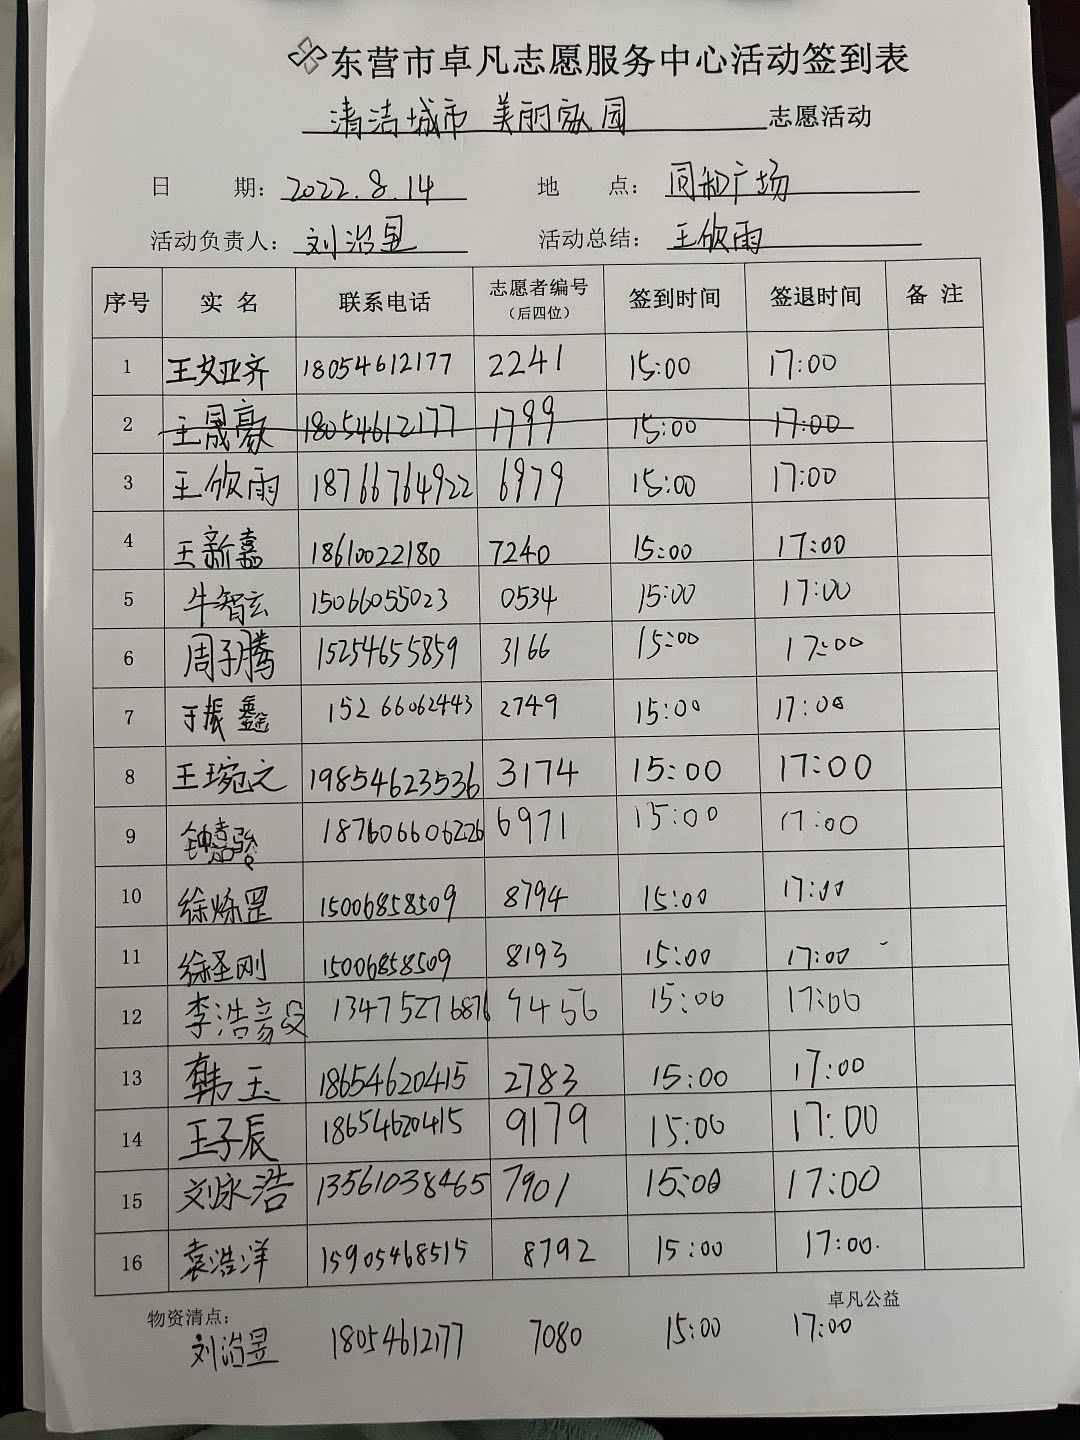 东营市卓凡志愿服务中心活动签到表
清洁城市 美丽家园 志愿活动
日 期: 2022.8.14 地 点: 同和广场
活动负责人: 刘治昱 活动总结: 王欣雨
序号 实 名 联系电话 志愿者编号（后四位） 签到时间 签退时间 备 注
1 王梦亚齐 18054612177 2241 15:00 17:00
2 王晟豪 18054612177 1799 15:00 17:00
3 王欣雨 18766764922 6979 15:00 17:00
4 王新嘉 18610022180 7240 15:00 17:00
5 牛智玄 15066055023 0534 15:00 17:00
6 周子腾 15254655859 3166 15:00 17:00
7 于振鑫 15266062443 2749 15:00 17:00
8 王琬之 19854623536 3174 15:00 17:00
9 钟嘉骏 187606606226 6971 15:00 17:00
10 徐烁罡 15006858509 8794 15:00 17:00
11 徐圣刚 15006858509 8193 15:00 17:00
12 李浩 13475276876 9456 15:00 17:00
13 韩玉 18654620415 2783 15:00 17:00
14 王子辰 18654620415 9179 15:00 17:00
15 刘泳浩 13561038465 7901 15:00 17:00
16 袁浩洋 15905468515 8792 15:00 17:00.
物资清点: 卓凡公益
刘治昱 18054612177 7080 15:00 17:00